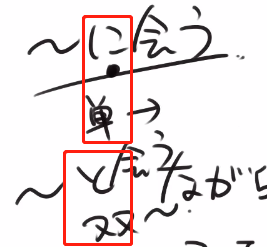 ～に会う
単 →
～と会う
ながら
双～